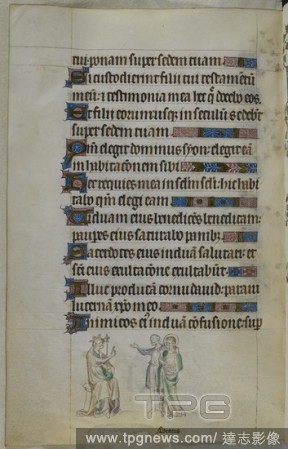 tui ponam super sedem tuam.
Si custodierint filii tui testamētū
meū: ⁊ testimonia mea hec q̄ docebo eos.
Et filii eorum usq; in seculū: sedebūt
super sedem tuam.
Qm̄ elegit dominus syon: elegit eā
in habitacōnem sibi
Hec requies mea in sclm scli: hic habi
tabo qm̄ elegi eam
Viduam eius benedicēs benedicam:
pauperes eius saturabo panib;
Sacerdotes eius induā salutari: et
scī eius exultacōne exultabūt.
Illuc producā cornu dauid: paraui
lucernā xp̄o meo.
Inimicos eī induā confusione: sup
TPG
www.tpgnews.com / 達志影像